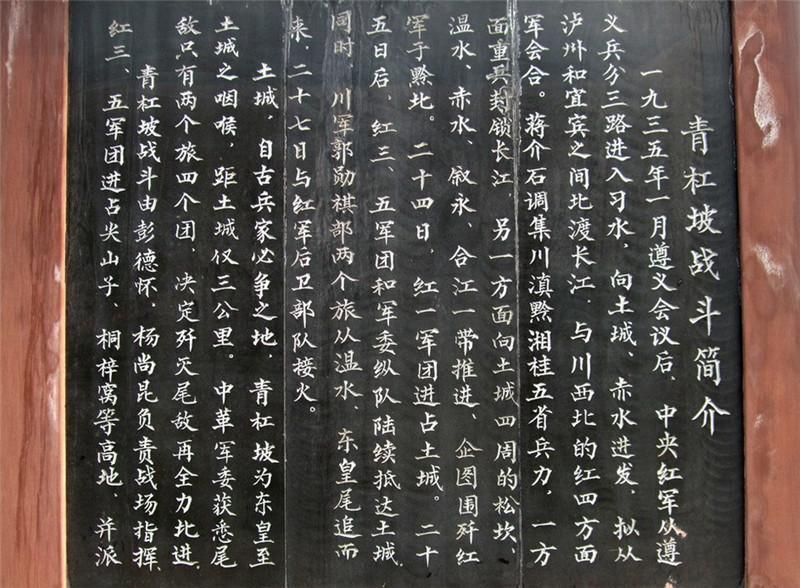 青杠坡战斗简介
一九三五年一月遵义会议后，中央红军从遵
义兵分三路进入习水，向土城、赤水进发，拟从
泸州和宜宾之间北渡长江，与川西北的红四方面
军会合。蒋介石调集川滇黔湘桂五省兵力，一方
面重兵封锁长江，另一方面向土城四周的松坎、
温水、赤水、叙永、合江一带推进，企图围歼红
军于黔北。二十四日，红一军团进占土城。二十
五日后，红三、五军团和军委纵队陆续抵达土城，
同时，川军郭勋祺部两个旅从温水、东皇尾追而
来，二十七日与红军后卫部队接火。
土城，自古兵家必争之地，青杠坡为东皇至
土城之咽喉，距土城仅三公里。中革军委获悉尾
敌只有两个旅四个团，决定歼灭尾敌再全力北进，
青杠坡战斗由彭德怀、杨尚昆负责战场指挥，
红三、五军团进占尖山子、桐梓窝等高地，并派